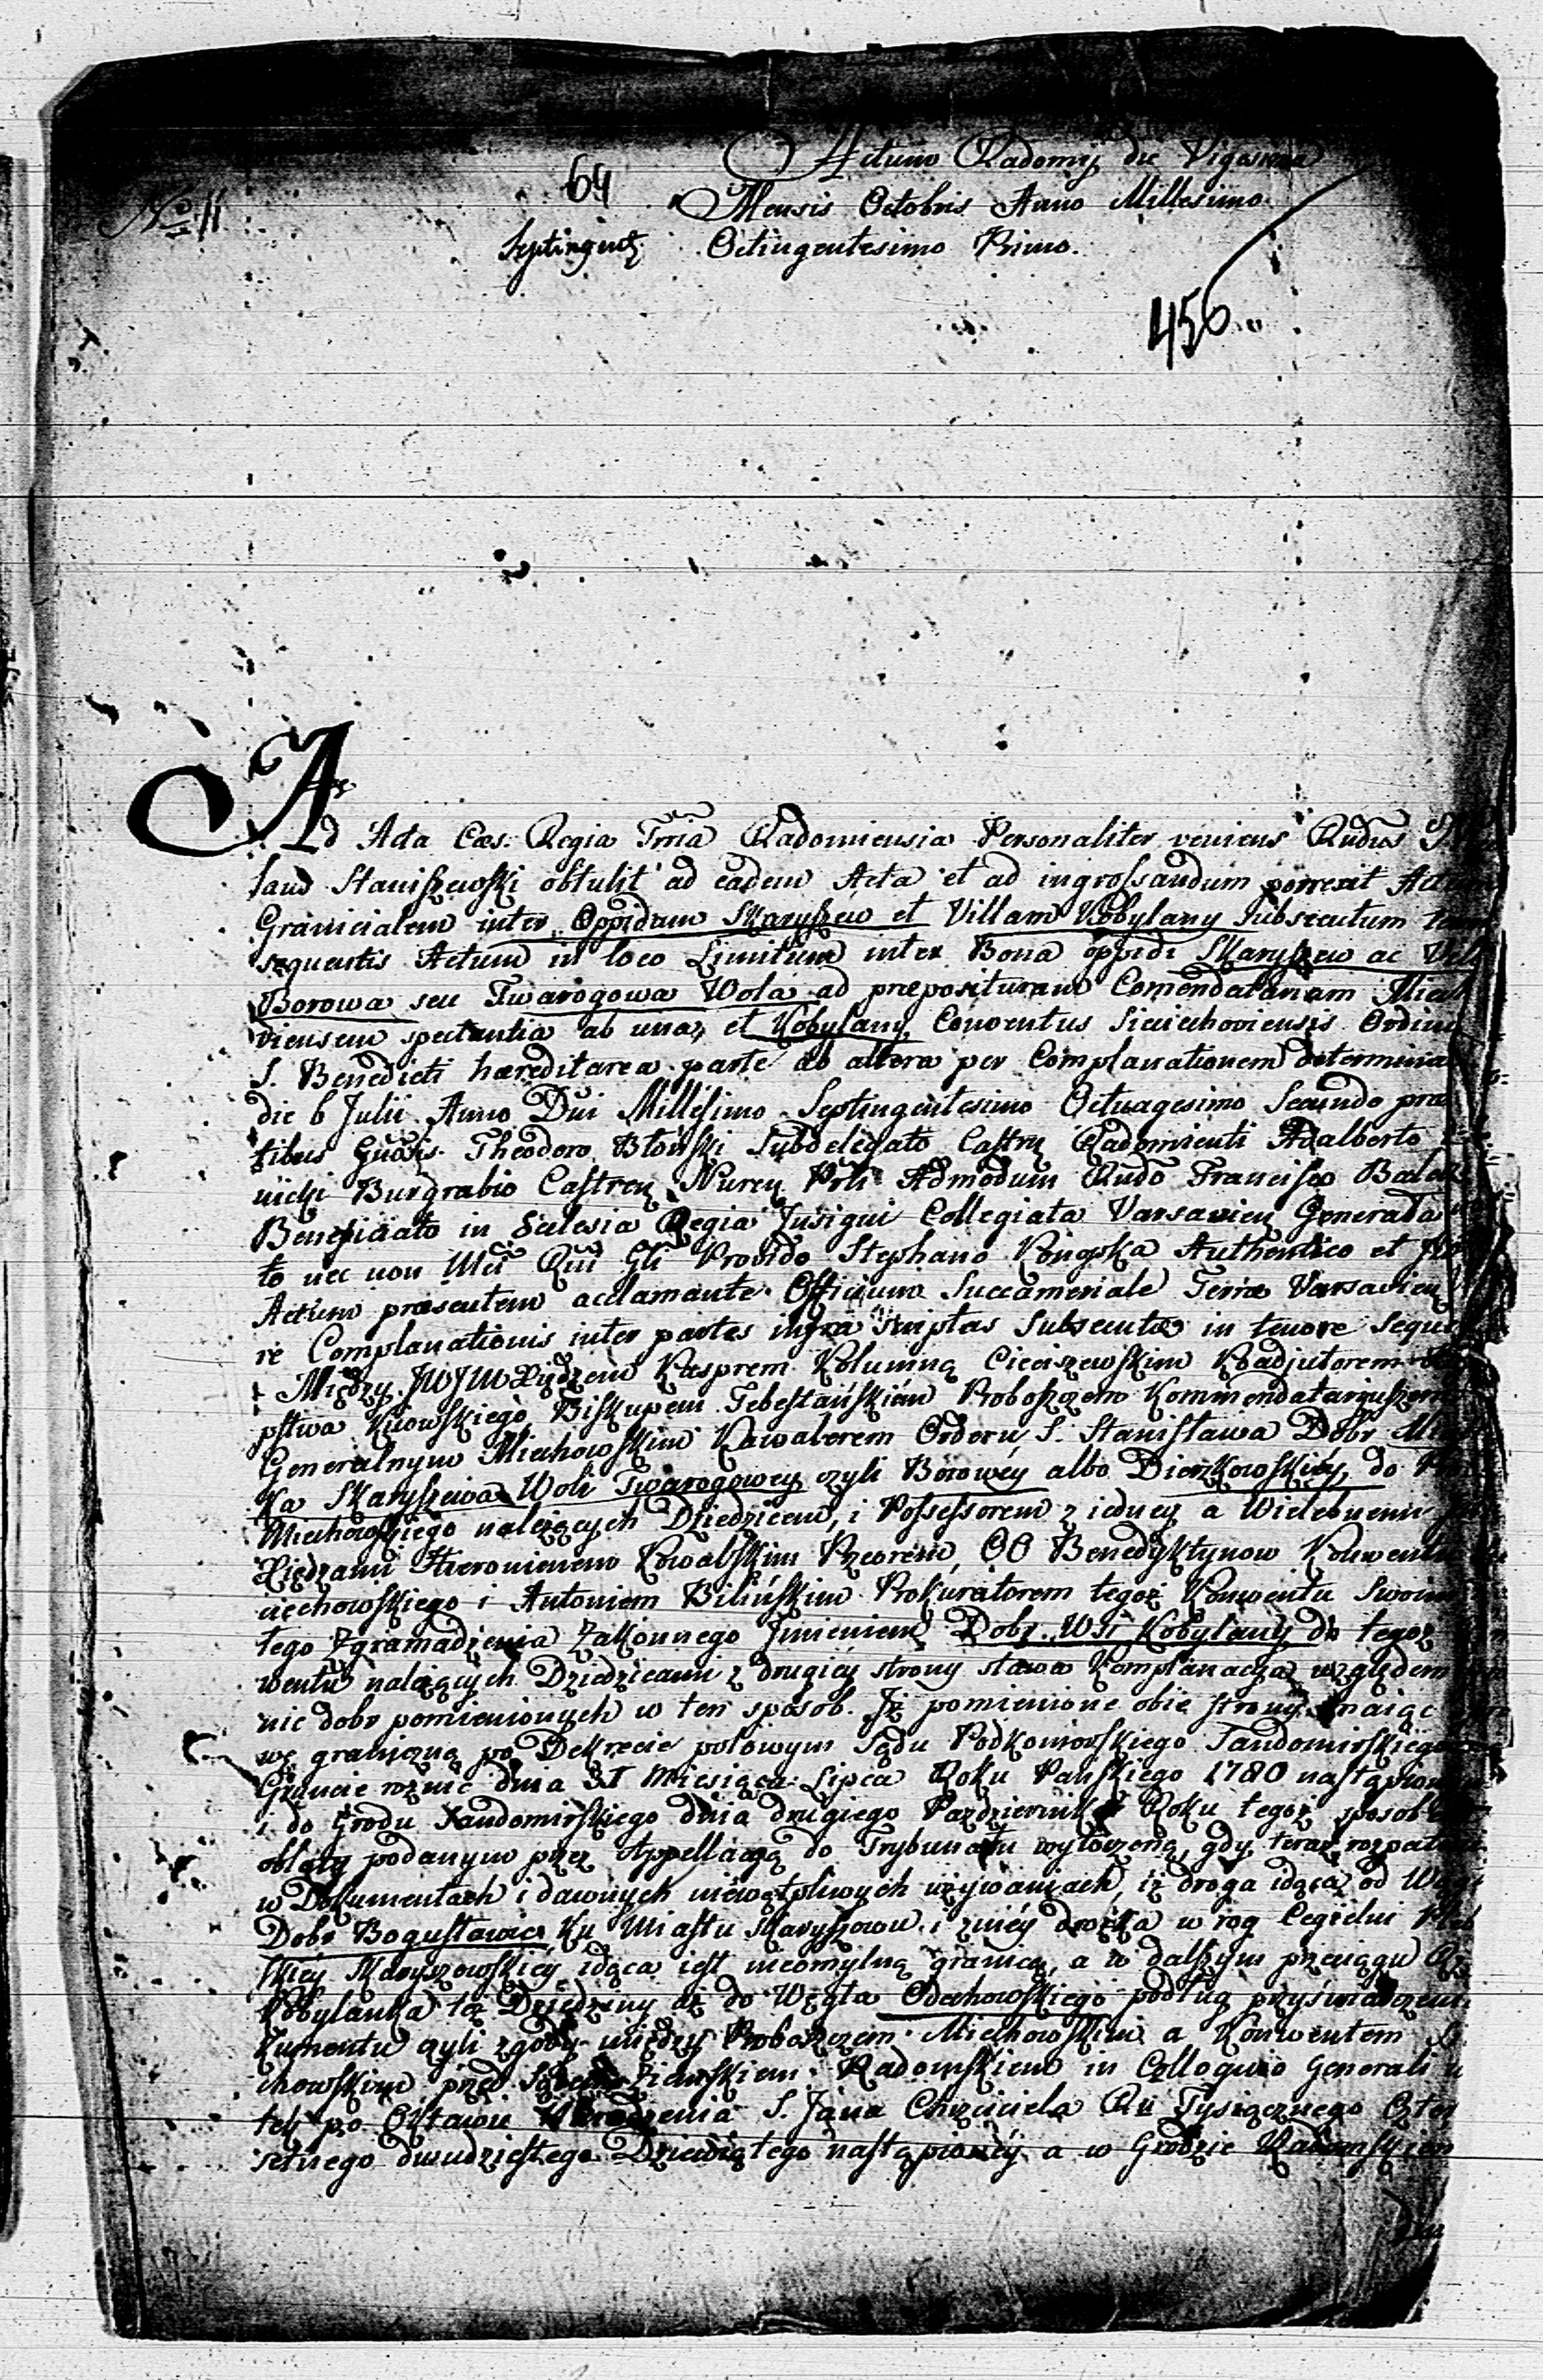 Actum Radomij die Vigesima
No 11 69 Mensis Octobris Anno Millesimo
Septingentz Octingentesimo Primo.
456
Ad Acta Cæs: Regia Trria Radomiensia Personaliter veniens Rndus
laus Staniszewski obtulit ad eadem Acta et ad ingrossandum porrexit
Granicialem inter Oppidum Skaryszew et Villam Kobylany subsecutum
sequentis Actum in loco Limitum inter Bona oppidi Skaryszew ac
Borowa seu Twarogowa Wola ad præposituram Comendatariam
viensem spectantia ab una, et Kobylany Conventus Sieciechoviensis
S. Benedicti hæreditarea parte ab altera per Complanationem
die 6 Julii Anno Dni Millesimo Septingentesimo Octuagesimo Secundo
tibus Gnosis Theodoro Błoński Subdelegato Castrz Radomienti Adalberto
nicki Burgrabio Castren Nuren Prtt Admodum Rndo Francisco
Beneficiato in Eclesia Regia Insigni Collegiata Varsavien
to nec non Mri Rni Gli Provido Stephano Authentico et
Actum præsentem acclamante Officium Succameriale Terræ Varsavien
re Complanationis inter partes infra scriptas Subsecutæ in tenore
Między JWJM Xiędzem Kasprem Kolumną Cieciszewskim Koadjutorem
pstwa Kiiowskiego Biskupem Tebestańskiém Proboszczem Kommendataryuszem
Generalnym Miechowskim Kawalerem Orderu S. Stanisława Dobr
ka Skaryszewa Woli Twarogowey czyli Borowéy albo Dierzkowskiéy, do
Miechowskiego należących Dziedzicem, i Possessorem z iedney a Wielebnemi
Xiędzami Hieronimem Kowalskim Przeorem, OO Benedyktynow
ciechowskiego i Antoniem Bilińskim Prokuratorem tegoż Konwentu
tego Zgromadzenia Zakonnego Imieniem Dobr Wsi Kobylany do tegoż
wentu należących Dziedzicami z drugiey strony stawa Komplanacya względem
nic dobr pomienionych w ten sposob. Iż pomienione obie strony maiąc
wę graniczną po Dekrecie polowym Sądu Podkomorskiego Sandomirskiego
Gruncie roznic dnia 31 Miesiąca Lipca Roku Pańskiego 1780
i do Grodu Sandomirskiego dnia drugiego Pazdziernika Roku tegoż
oblaty podanym przez Appellacyą do Trybunału wytoczoną, gdy teraz
w Dokumentach i dawnych niewątpliwych używaniach, iż droga idąca od
Dobr Bogusławic ku Miastu Skaryszowu i z niéy drożka w rog Cegielni
skiéy Skaryszowskiéy idąca iest nieomylną granicą, a w dalszym przeciągu
Kobylanka też Dziedziny aż do Węgła Odechowskiego podług
kumentu czyli zgody między Proboszczem Miechowskim a Konwentem
chowskim przed Ziemskiem Radomskiem in Colloquio Generali
tek po Oktawie Narodzenia S. Jana Chrzciciela Ru Tysiącznego
setnego dwudziestego Dziewiątego nastąpionéy a w Grodzie Radomskiem